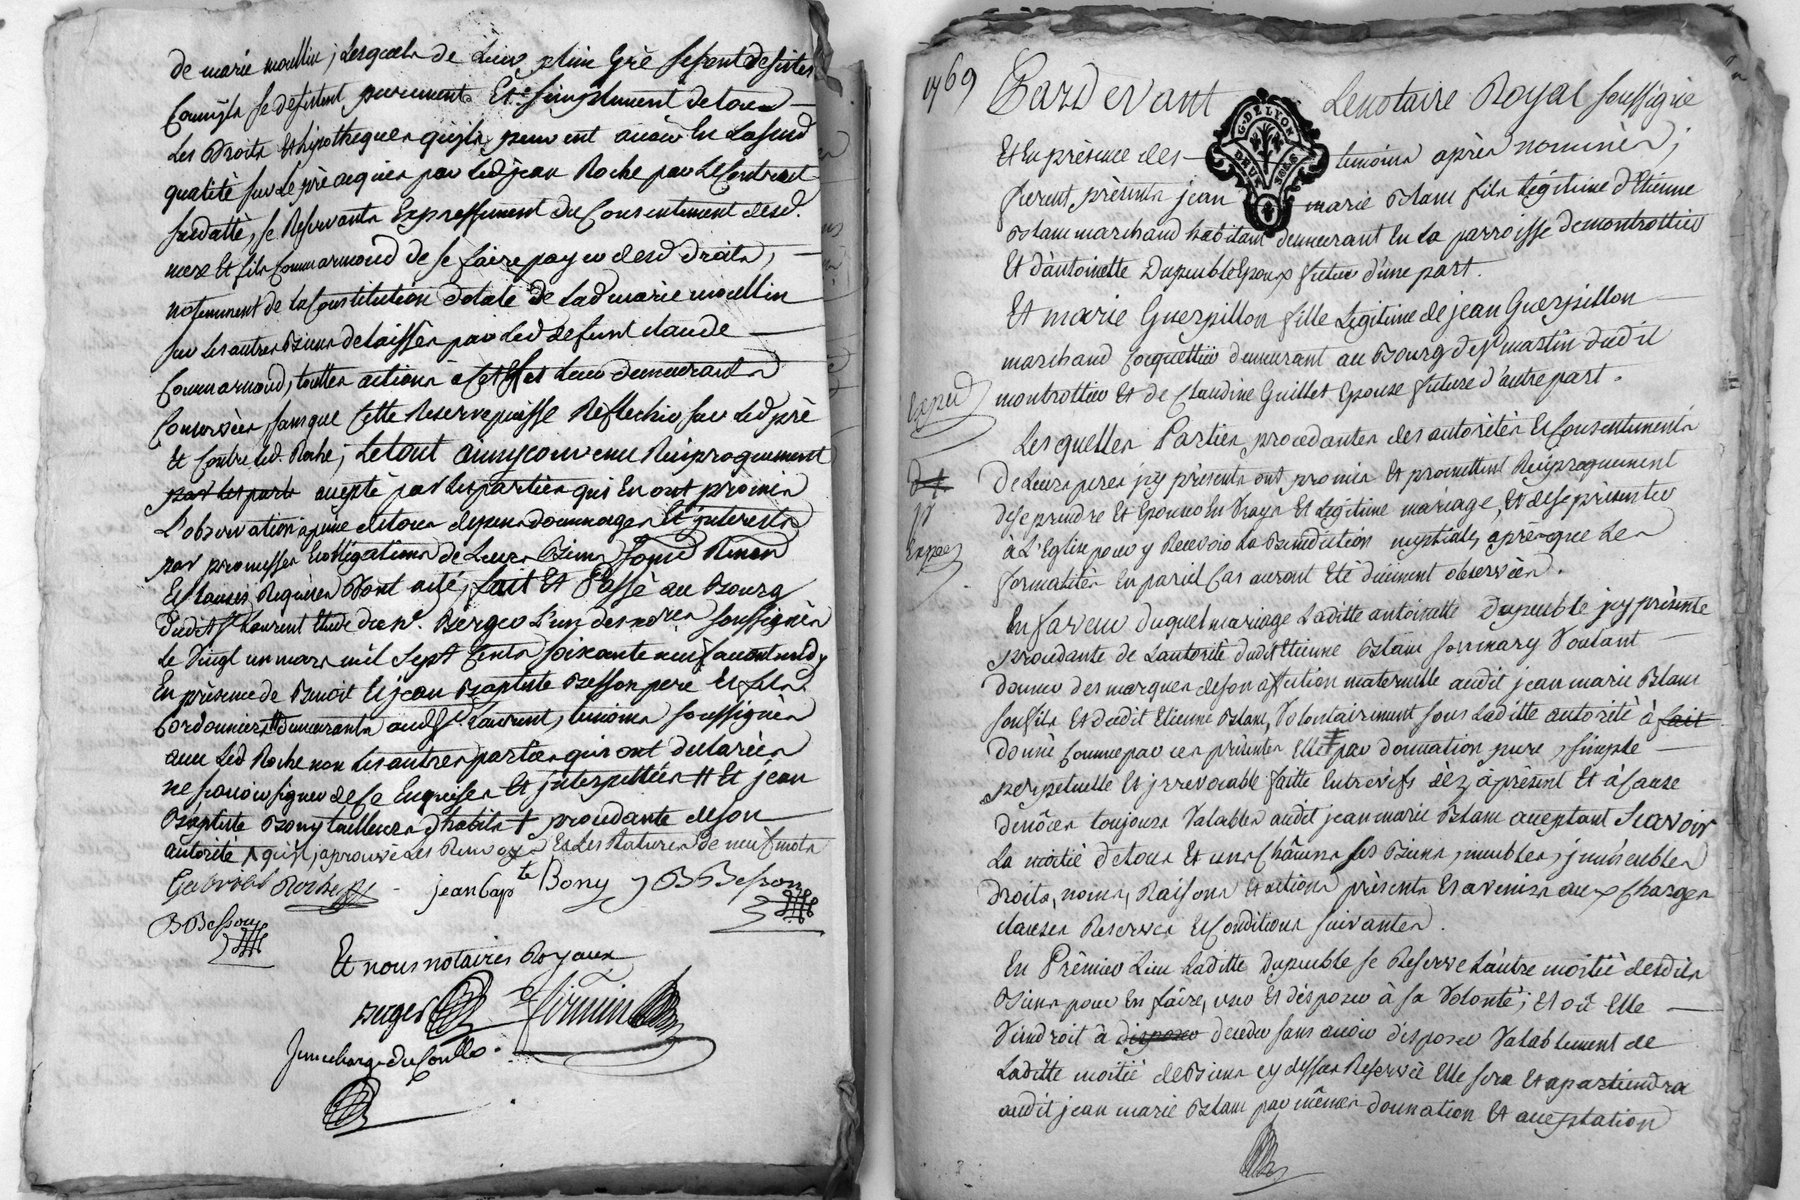 de marie moullin, Lesquels de Leur plein Gré se sont desistés
Comme ils se desistent purement Et simplement de tous
Les Droits Et hipotheques qu'ils peuvent avoir En Lasusd
qualité sur Le pré acquis par Led jean Roche par Le Contract
susdatté, se Reservants Expressement du Consentement desd.
mere Et fils Commarmond de se faire payer desd droits,
notemment de la Constitution dotale de Lad marie moullin
sur les autres Biens delaissés par Led defunt claude
Commarmond, touttes actions a cet Effet Leur demeurants
Conservées, sans que Cette Reserve puisse Reflechir sur Led pré
Et Contre Led. Roche; Le tout ainsy convenu Reciproquement
par les parte accepté par Les parties qui En ont promis
L'observation a peine de tous depens dommages Et interests
par promesses Et obligations de Leurs Biens
Et clauses Requises Dont acte, fait Et Passé au Bourg
dudit St Laurent Etude dud Sr. Berger L'un des nores soussignés
Le Vingt un mars mil Sept Cents soixante neuf avant midy
En présence de Benoit Et jean Baptiste Besson pere Et fils
Cordonniers demeurants aud St Laurent, temoins soussignés
avec Led Roche non Les autres parties qui ont declarés
ne sçavoir signer de Ce Enquises Et interpellées # Et jean
Baptiste Bony tailleurs d'habits + procedante de son
autorité
Gabriel Roche
jean Bapte Bony
B Besson
B Besson
Et nous notaires Royaux
Berger
1769
Pardevant Le notaire Royal soussigné
G. DE LYON
DEUX SOLS
Et En présence des temoins après nommés;
furent présents jean marie Blanc fils Légitime d'Etienne
Blanc marchand habitant demeurant En La parroisse de montrottier
Et d'antoinette Dupeuble Epoux futur d'une part.
Et marie Guerpillon fille Légitime de jean Guerpillon
marchand Cocquettier demeurant au Bourg de St martin dudit
montrottier Et de Claudine Guillet Epouse future d'autre part.
Exped
Lesquelles Parties procedantes des autorités Et Consentements
De Leurs peres jcy présents ont promis Et promettent Reciproquement
de se prendre Et Epouser En Vraye Et Légitime mariage, Et de se présenter
à L'Eglise pour y Recevoir La Benediction nuptiale, après que Les
formalités En pareil Cas auront Eté düement observées.
En faveur duquel mariage Laditte antoinette Dupeuble jcy présente
procedante de Lautorité dudit Etienne Blanc son mary Voulant
donner des marques de son affection maternelle audit jean marie Blanc
son fils Et dudit Etienne Blanc, Volontairement sous Laditte autorité à fait
donné Comme par ces présentes Elle par donnation pure, simple
perpetuelle Et jrrevocable faitte Entre vifs dèz àprésent Et à Cause
de nôces toujours Valables audit jean marie Blanc acceptant Scavoir
La moitié de tous Et uns Châcuns ses Biens, meubles, jmmeubles
droits, noms, Raisons Et actions présents Et avenirs aux Charges
clauses Reserves Et Conditions suivantes.
En Prémier Lieu Laditte Dupeuble se Reserve Lautre moitié desdits
Biens pour En faire, user Et disposer à sa Volonté; Et où Elle
Viendroit à disposer deceder sans avoir disposer Valablement de
Laditte moitié de Biens cy dessus Reservée Elle sera Et apartiendra
audit jean marie Blanc par mêmes donnation Et acceptation